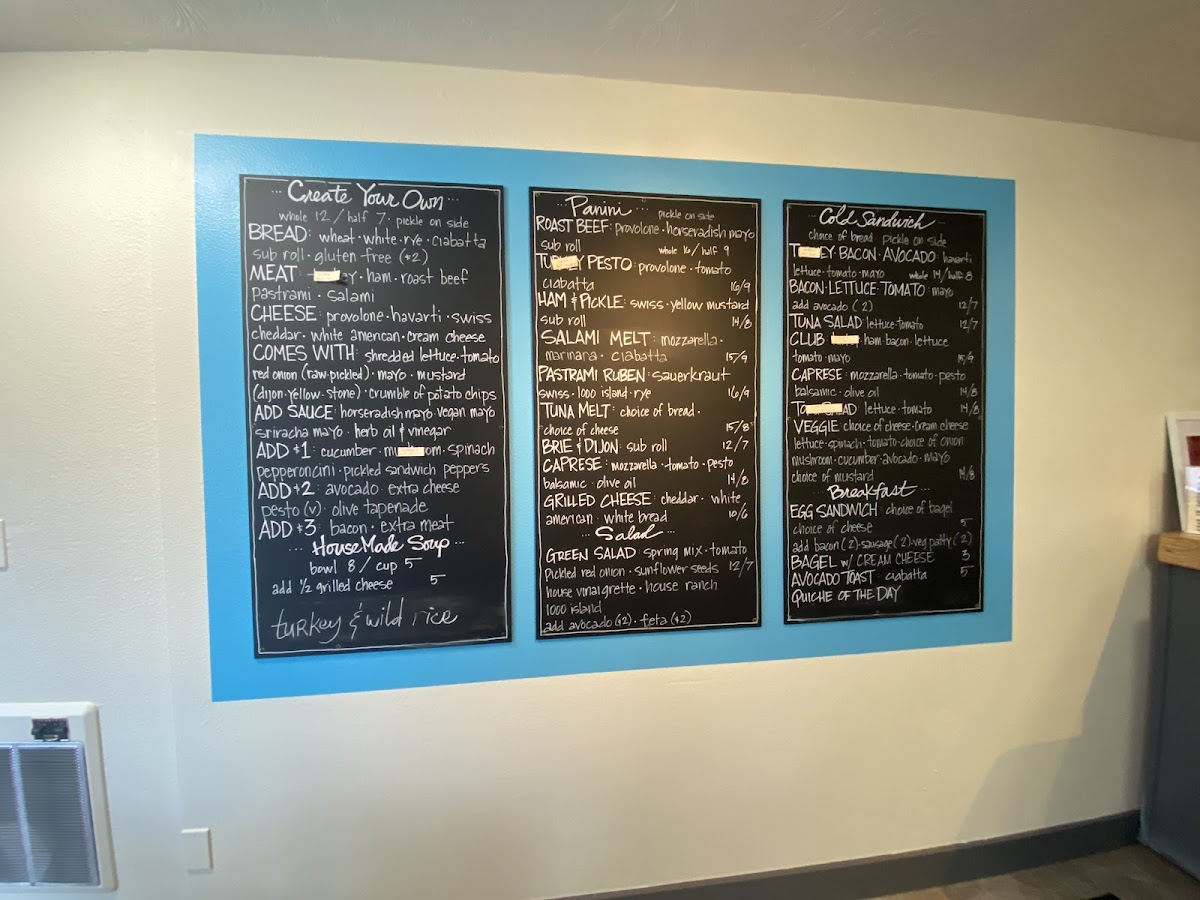 Create Your Own
whole 12 / half 7 · pickle on side
BREAD: wheat · white · rye · ciabatta
sub roll · gluten-free (+2)
MEAT ey · ham · roast beef
pastrami · salami
CHEESE: provolone · havarti · swiss
cheddar · white american · cream cheese
COMES WITH: shredded lettuce · tomato
red onion (raw · pickled) · mayo · mustard
(dijon · yellow · stone) · crumble of potato chips
ADD SAUCE: horseradish mayo · vegan mayo
sriracha mayo · herb oil & vinegar
ADD $1: cucumber · mu om · spinach
pepperoncini · pickled sandwich peppers
ADD $2: avocado extra cheese
pesto (v) · olive tapenade
ADD $3: bacon · extra meat
House Made Soup
bowl 8 / cup 5
add ½ grilled cheese 5
turkey & wild rice
Panini
pickle on side
ROAST BEEF: provolone · horseradish mayo
sub roll whole 16 / half 9
TU Y PESTO: provolone · tomato
ciabatta 16/9
HAM & PICKLE: swiss · yellow mustard
sub roll 14/8
SALAMI MELT: mozzarella ·
marinara · ciabatta 15/9
PASTRAMI RUBEN: sauerkraut
swiss · 1000 island · rye 16/9
TUNA MELT: choice of bread ·
choice of cheese 15/8
BRIE & DIJON: sub roll 12/7
CAPRESE: mozzarella · tomato · pesto
balsamic · olive oil 14/8
GRILLED CHEESE: cheddar · white
american · white bread 10/6
Salad
GREEN SALAD: spring mix · tomato
pickled red onion · sunflower seeds 12/7
house vinaigrette · house ranch
1000 island
add avocado ($2) · feta ($2)
Cold Sandwich
choice of bread pickle on side
T EY · BACON · AVOCADO: havarti
lettuce · tomato · mayo whole 14 / half 8
BACON · LETTUCE · TOMATO: mayo
add avocado (2) 12/7
TUNA SALAD lettuce · tomato 12/7
CLUB ham · bacon · lettuce
tomato · mayo 15/9
CAPRESE: mozzarella · tomato · pesto
balsamic · olive oil 14/8
TO AD lettuce · tomato 14/8
VEGGIE: choice of cheese · cream cheese
lettuce · spinach · tomato · choice of onion
mushroom · cucumber · avocado · mayo
choice of mustard 14/8
Breakfast
EGG SANDWICH choice of bagel
choice of cheese 5
add bacon (2) · sausage (2) · veg patty (2)
BAGEL w/ CREAM CHEESE 3
AVOCADO TOAST ciabatta 5
QUICHE OF THE DAY